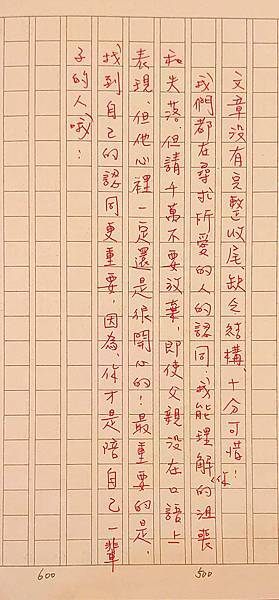 文章沒有完整收尾,缺乏結構,十分可惜!
我們都在尋求所愛的人的認同,我能理解你的沮喪
和失落,但請千萬不要放棄,即使父親沒在口語上
表現,但他心裡一定還是很開心的!最重要的是,
找到自己的認同更重要,因為,你才是陪自己一輩
子的人哦!
600
500